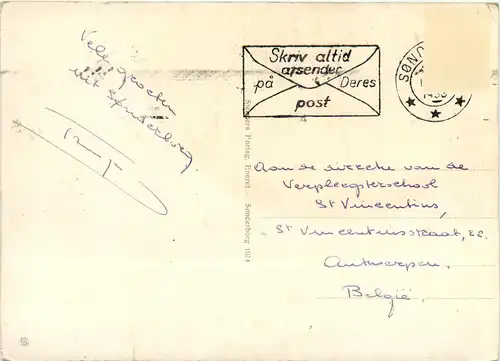 Vele groeten
uit Sønderborg.
Skriv altid
afsender
på Deres
post
SØND
1956
Eneret – Sønderborg 1024
Aan de directie van de
Verpleegsterschool
St Vincentius,
St Vincentiusstraat, 22.
Antwerpen.
België.